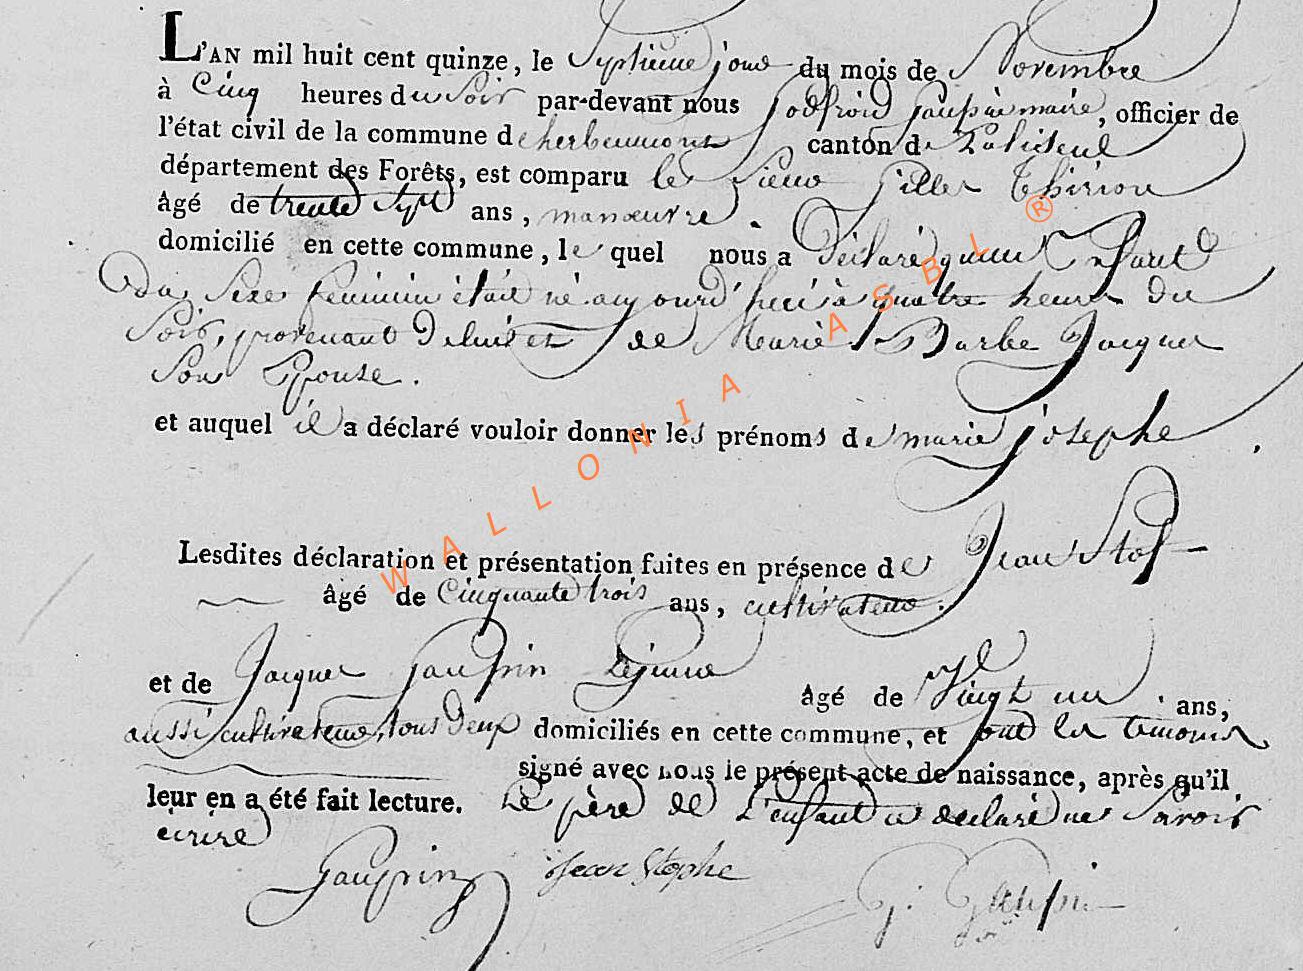 L'AN mil huit cent quinze, le Septieme jour du mois de Novembre
à Cinq heures du Soir par-devant nous godfroid gauspin maire, officier de
l'état civil de la commune de herbeumont canton de Paliseul
département des Forêts, est comparu le Sieur gilles Thiriou
âgé de trente Sept ans, manœuvre.
domicilié en cette commune, le quel nous a Déclaré qu'un Enfant
du Sexe feminin était né aujourd'hui à quatre heures du
Soir, provenant De lui et de Marie Barbe Jacques
Son Epouse.
et auquel il a déclaré vouloir donner les prénoms de marie josephe.
Lesdites déclaration et présentation faites en présence de Jean Stof
âgé de Cinquante trois ans, cultivateur.
et de Jacques gauspin Lejeune âgé de Vingt un ans,
aussi cultivateur, tous Deux domiciliés en cette commune, et ont les témoins
signé avec nous le présent acte de naissance, après qu'il
leur en a été fait lecture. Le père de L'enfant a declaré ne Savoir
écrire
Gauspin Jean Stophe G. Gauspin
WALLONIA ASBL ®